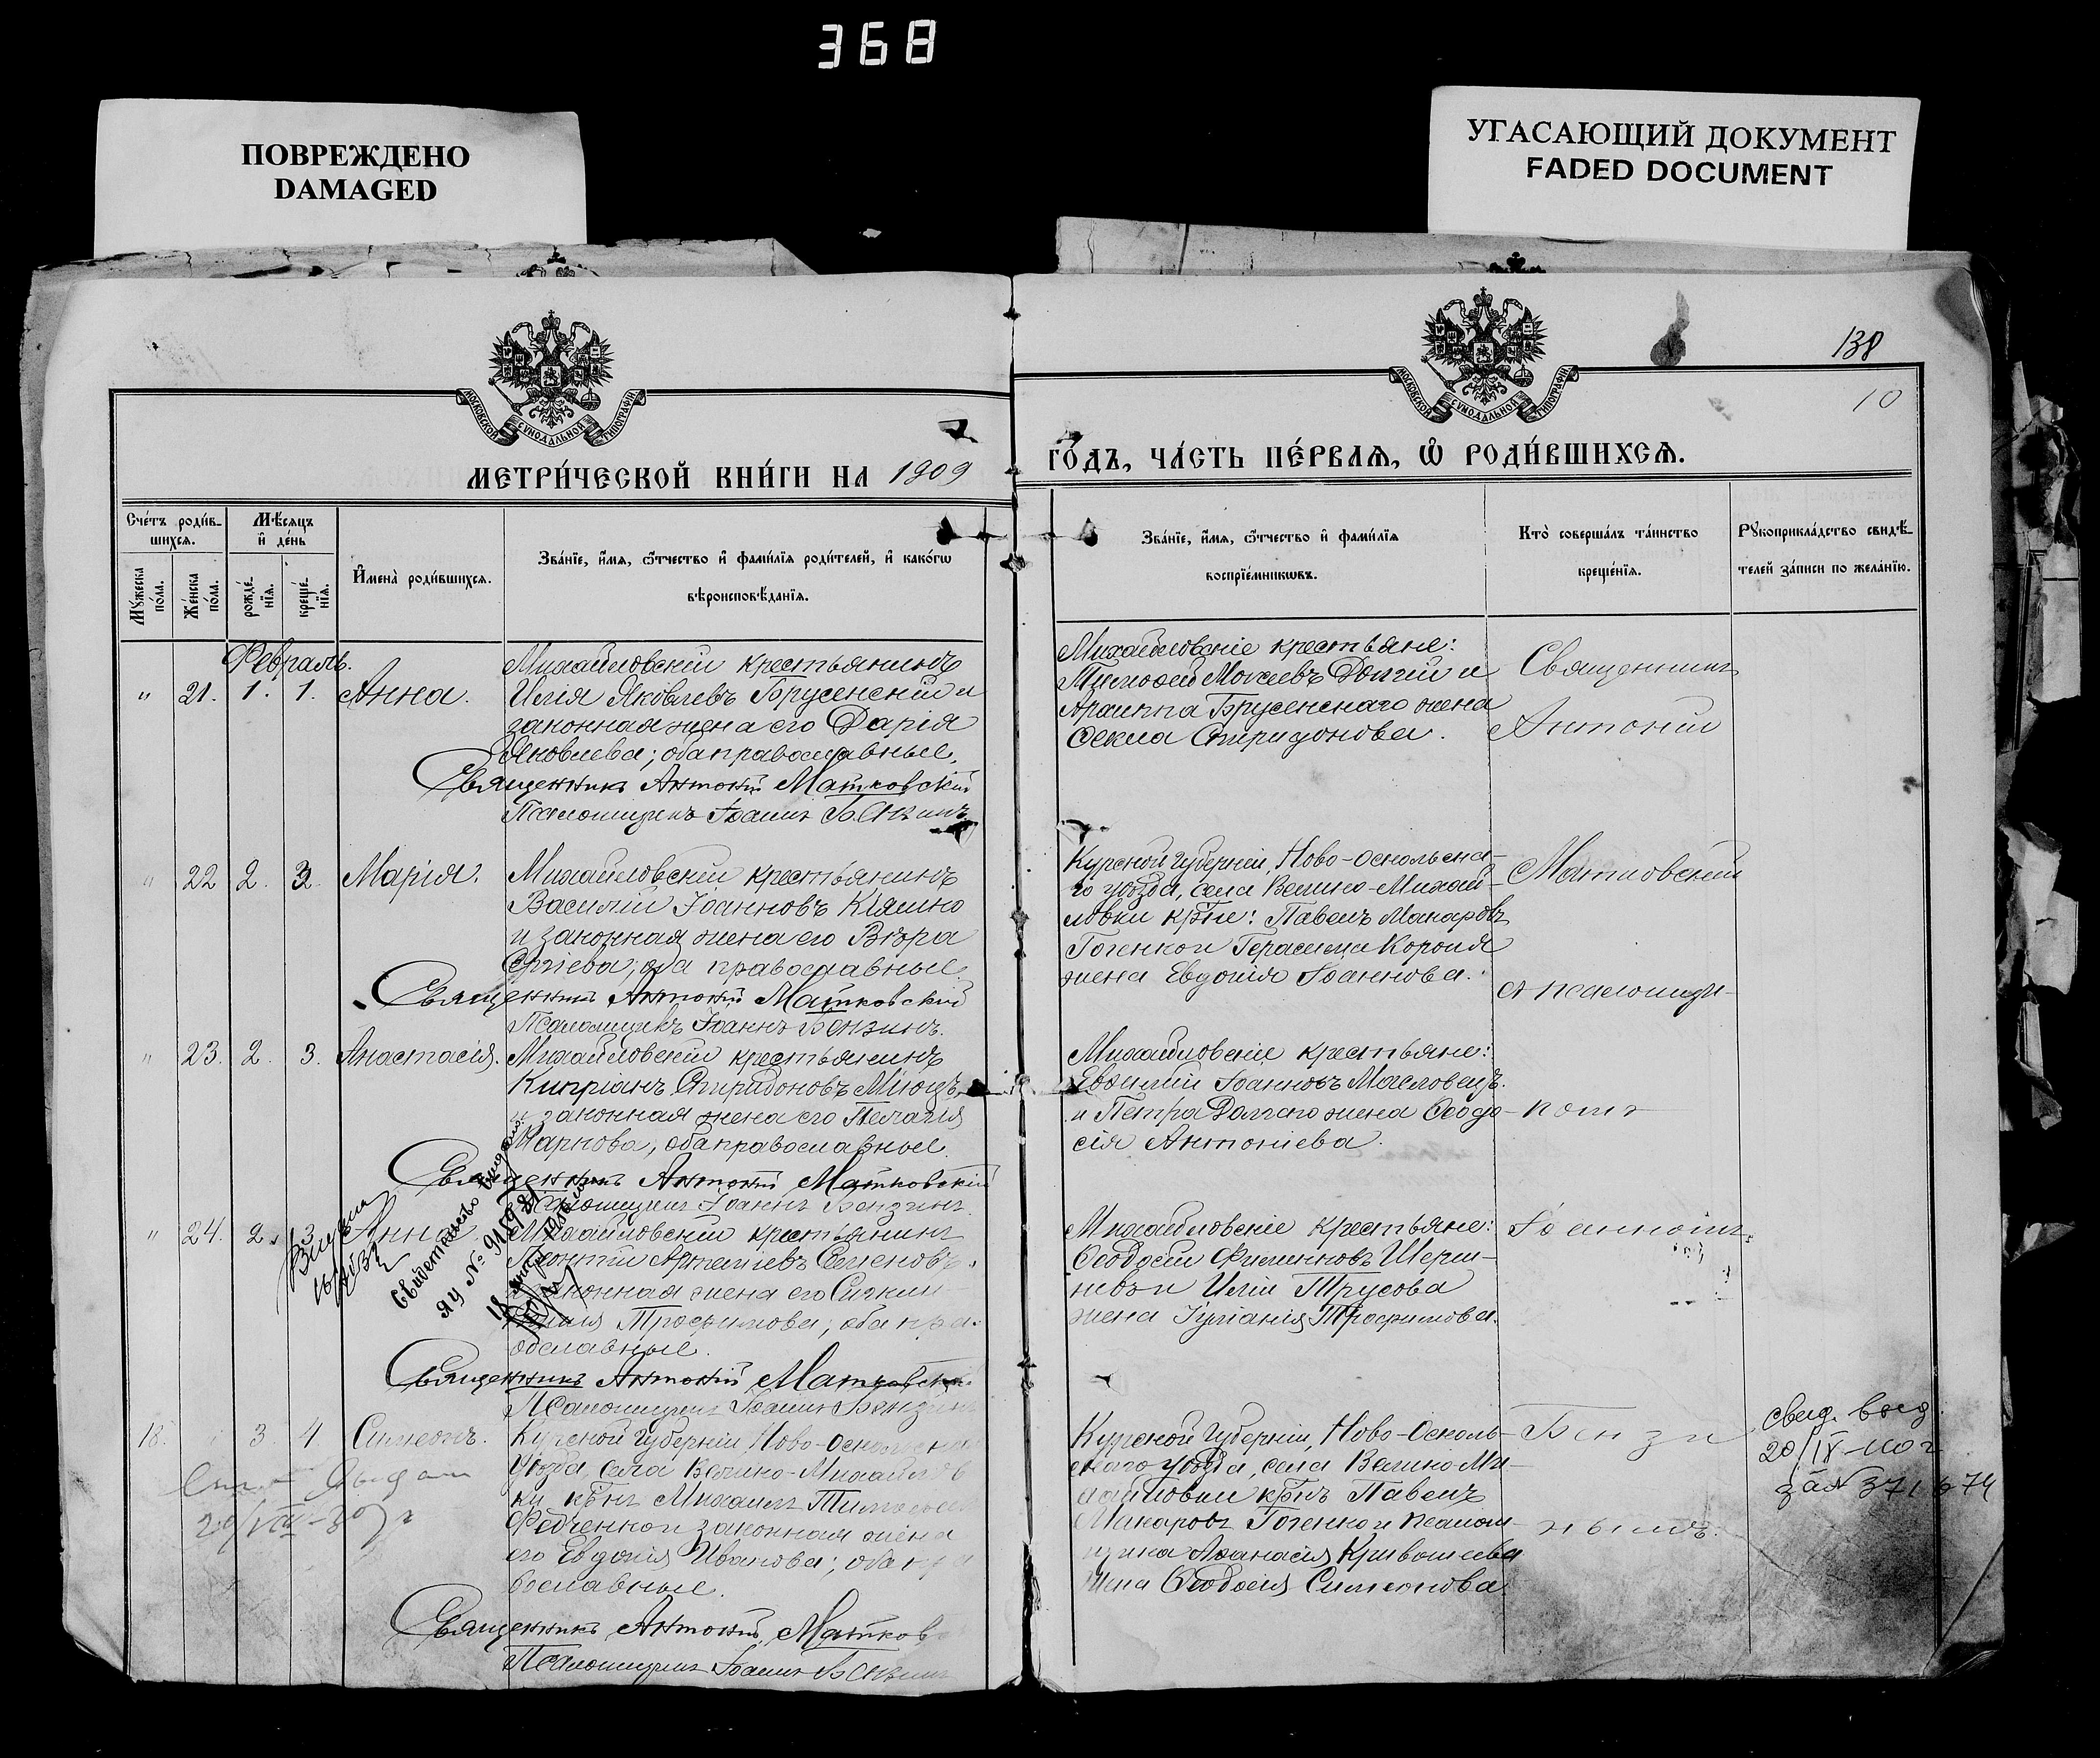 368
ПОВРЕЖДЕНО
DAMAGED
УГАСАЮЩИЙ ДОКУМЕНТ
FADED DOCUMENT
138
10
МОСКОВСКОЙ СѴНОДАЛЬНОЙ ТИПОГРАФІИ
МОСКОВСКОЙ СѴНОДАЛЬНОЙ ТИПОГРАФІИ
МЕТРИ́ЧЕСКОЙ КНИ́ГИ НА 1909
ГО́ДЪ, ЧА́СТЬ ПЕ́РВАѦ, Ѡ҆ РОДИ́ВШИХСѦ.
Сче́тъ роди́в-
шихсѧ.
Мѣ́сѧцъ
и҆ де́нь
Мꙋ́жеска по́ла.
Же́нска по́ла.
рожде́-
нїѧ.
креще́-
нїѧ.
И҆мена̀ роди́вшихсѧ.
Зва́нїе, и҆́мѧ, ѻ҆́тчество и҆ фами́лїѧ роди́телей, и҆ како́гѡ
вѣроисповѣ́данїѧ.
Зва́нїе, и҆́мѧ, ѻ҆́тчество и҆ фами́лїѧ
воспрїе́мникѡвъ.
Кто̀ соверша́лъ та́инство
креще́нїѧ.
Рꙋкоприкла́дство свидѣ́-
телей за́писи по жела́нїю.
Февраль.
" 21. 1. 1. Анна.
Михайловскій крестьянинъ
Илія Яковлевъ Брусенскій и
законная жена его Дарія
Яковлева; оба православные.
Священникъ Антоній Матковскій
Псаломщикъ Іоаннъ Бензинъ
Михайловскіе крестьяне:
Тимофей Мокеевъ Долгій и
Архиппа Брусенскаго жена
Ѳекла Спиридонова.
Священникъ
Антоній
" 22 2. 3. Марія.
Михайловскій крестьянинъ
Василій Іоанновъ Кляшно
и законная жена его Вѣра
Сергіева; оба православные.
Священникъ Антоній Матковскій
Псаломщикъ Іоаннъ Бензинъ.
Курской губерніи, Ново-Оскольска-
го уѣзда, села Велико-Михай-
ловки кр̃не: Павелъ Макаровъ
Гоченко и Герасима Короля
жена Евдокія Іоаннова.
Матковскій
съ псаломщи-
" 23. 2. 3. Анастасія.
Михайловскій крестьянинъ
Кипріанъ Спиридоновъ
и законная жена его Пелагія
Карпова; оба православные
Священникъ Антоній Матковскій
Псаломщикъ Іоаннъ Бензинъ.
Михайловскіе крестьяне:
Евфимій Іоанновъ Масловецъ.
и Петра Долгаго жена Ѳеодо-
сія Антоніева.
комъ
" 24. 2. 3 Анна
Свидетельство выдано
ЯУ №
Михайловскій крестьянинъ
Леонтій Артеміевъ Семеновъ.
и законная жена его
Трофимова; оба пра-
вославные.
Священникъ Антоній Матковскі
Псаломщикъ Іоаннъ Бензинъ
Михайловскіе крестьяне:
Ѳеодосій Филипповъ Шерш-
невъ и Иліи Трусова
жена Іуліанія Трофимова.
Іоанномъ
18. 3. 4 Симеонъ.
Выдан
Курской губерніи, Ново-Оскольска
уѣзда, села Велико-Михайлов
ки кр̃нъ Михаилъ Тимо
Федченко и законная жена
его Евдокія Иванова; оба пра
вославные.
Священникъ Антоній Матков
Псаломщикъ Іоаннъ Бензинъ
Курской губерніи, Ново-Осколь-
скаго уѣзда, села Велико-Ми-
хайловки кр̃нъ Павелъ
Макаровъ Гоченко и псалом-
щика Аѳанасія Кривошеева
жена Ѳеодосія Симеонова.
Бензи
нымъ.
свид. выд.
20/IX
за №